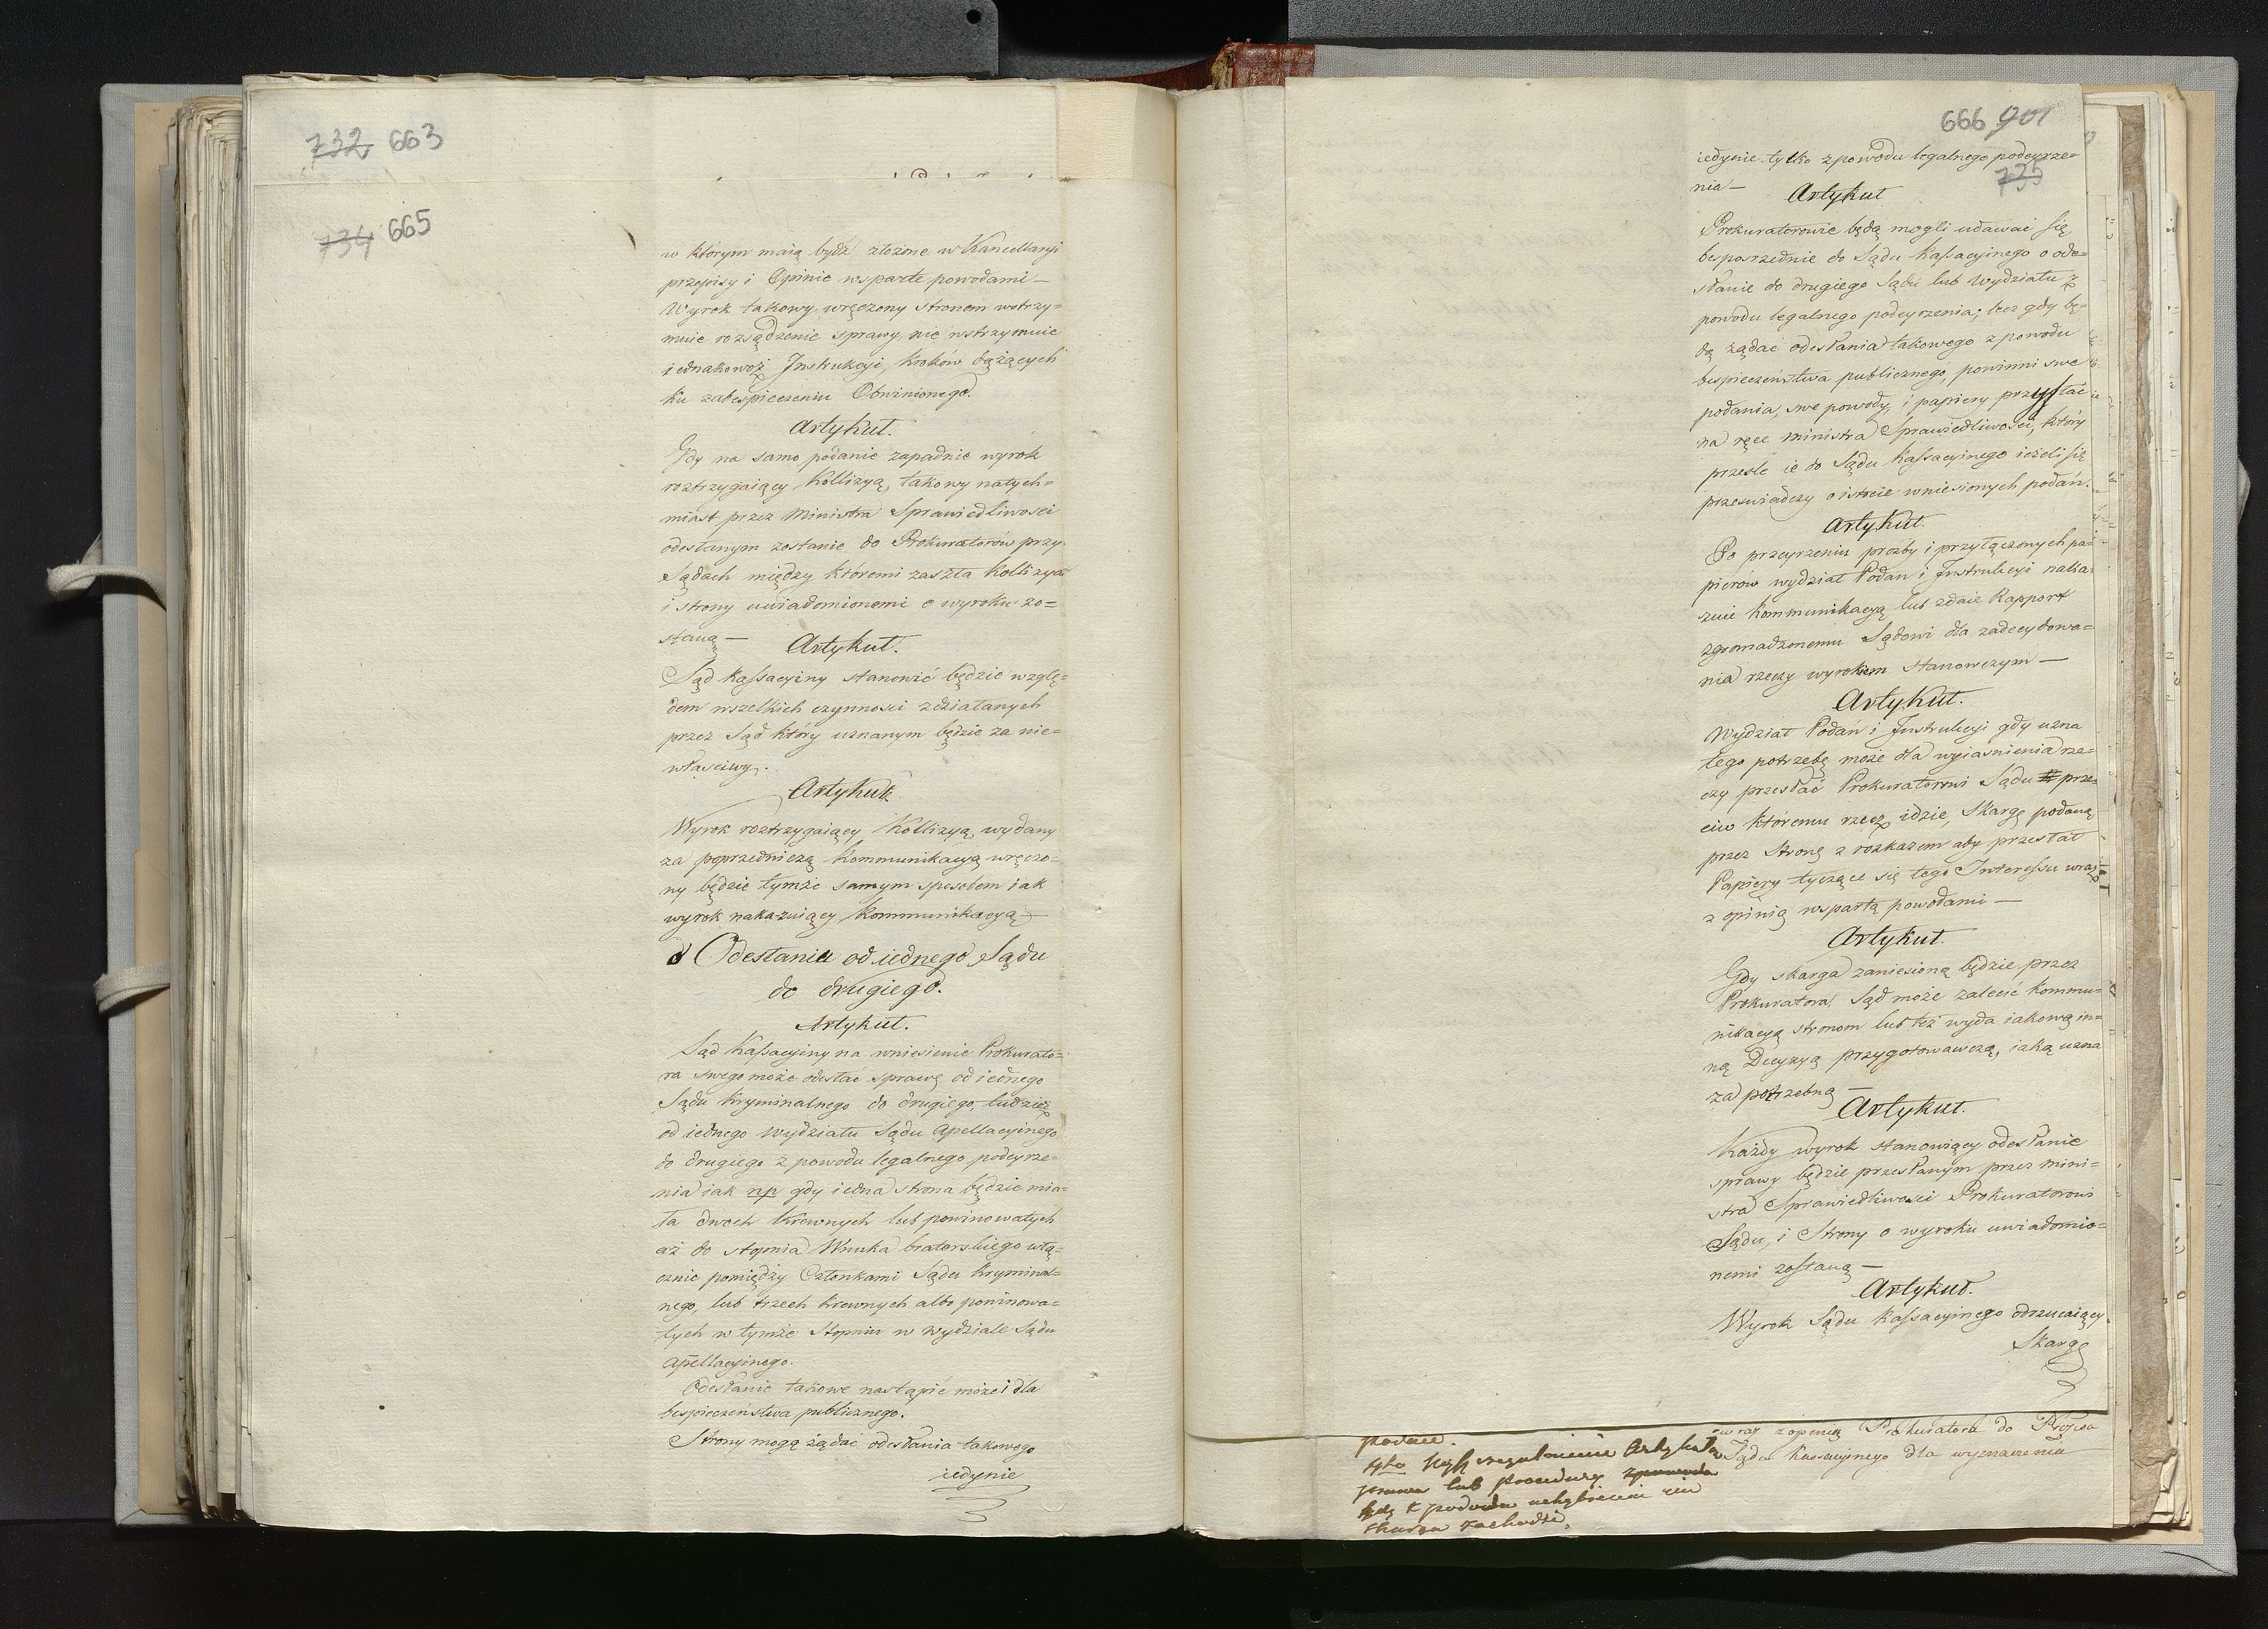 732 663
734 665
w którym maią bydź złożone w Kancellaryi
przepisy i Opinie wsparte powodami —
Wyrok takowy wręczony stronom wstrzy=
muie rozsądzenie sprawy, nie wstrzymuie
iednakowoż Instrukcyi, kroków dążących
ku zabespieczeniu Obwinionego.
Artykuł.
Gdy na samo podanie zapadnie wyrok
roztrzygaiący Kollizyą, takowy natych=
miast przez Ministra Sprawiedliwości
odesłanym zostanie do Prokuratorów przy
Sądach między któremi zaszła Kollizya
i strony uwiadomionemi o wyroku zo=
staną —
Artykuł.
Sąd Kassacyiny stanowić będzie wzglę=
dem wszelkich czynności zdziałanych
przez Sąd który uznanym będzie za nie=
właściwy.
Artykuł
Wyrok roztrzygaiący Kollizyą, wydany
za poprzedniczą Kommunikacyą wręczo=
ny będzie tymże samym sposobem iak
wyrok nakazuiący Kommunikacyą —
O Odesłaniu od iednego Sądu
do drugiego.
Artykuł.
Sąd Kassacyiny na wniesienie Prokurato=
ra swego może odesłać sprawę od iednego
Sądu Kryminalnego do drugiego, tudzież
od iednego Wydziału Sądu Apellacyinego
do drugiego z powodu legalnego podeyrze=
nia iak np gdy iedna strona będzie mia=
ła dwóch Krewnych lub powinowatych
aż do stopnia Wnuka braterskiego włą=
cznie pomiędzy Członkami Sądu Kryminal=
nego, lub trzech krewnych albo powinowa=
tych w tymże Stopniu w Wydziale Sądu
Apellacyinego.
Odesłanie takowe nastąpić może i dla
bespieczeństwa publicznego.
Strony mogą żądać odesłania takowego
iedynie
666 901
735
iedynie tylko z powodu legalnego podeyrze=
nia —
Artykuł
Prokuratorowie będą mogli udawać się
besposrzednie do Sądu Kassacyinego o ode=
słanie do drugiego Sądu lub Wydziału z
powodu legalnego podeyrzenia; lecz gdy bę=
dą żądać odesłania takowego z powodu
bespieczeństwa publicznego, powinni swe
podania, swe powody, i papiery przysłać
na ręce Ministra Sprawiedliwości, który
prześle ie do Sądu Kassacyinego ieżeli się
przeswiadczy o istocie wniesionych podań.
Artykuł.
Po przeyrzeniu prozby i przyłączonych pa=
pierów wydział Podań i Instrukcyi naka=
zuie Kommunikacyą lub zdaie Rapport
zgromadzonemu Sądowi dla zadecydowa=
nia rzeczy wyrokiem stanowczym —
Artykuł.
Wydział Podań i Instrukcyi gdy uzna
tego potrzebę może dla wyiasnienia rze=
czy przesłać Prokuratorowi Sądu prze=
ciw któremu rzecz idzie, Skargę podaną
przez Stronę z rozkazem aby przesłał
Papiery tyczące się tego Interessu wraz
z opinią wspartą powodami —
Artykuł.
Gdy skarga zaniesioną będzie przez
Prokuratora, Sąd może zalecić Kommu=
nikacyą stronom lub też wyda iakową in=
ną Decyzyą przygotowawczą, iaką uzna
za potrzebną —
Artykuł.
Każdy wyrok stanowiący odesłanie
sprawy będzie przesłanym przez Mini=
stra Sprawiedliwości Prokuratorowi
Sądu, i Strony o wyroku uwiadomio=
nemi zostaną —
Artykuł.
Wyrok Sądu Kassacyinego odrzucaiący
Skargę
wraz z opinią Prokuratora do Prezesa
Sądu Kassacyinego dla wyznaczenia
prawa lub procedury
skarga zachodzi.